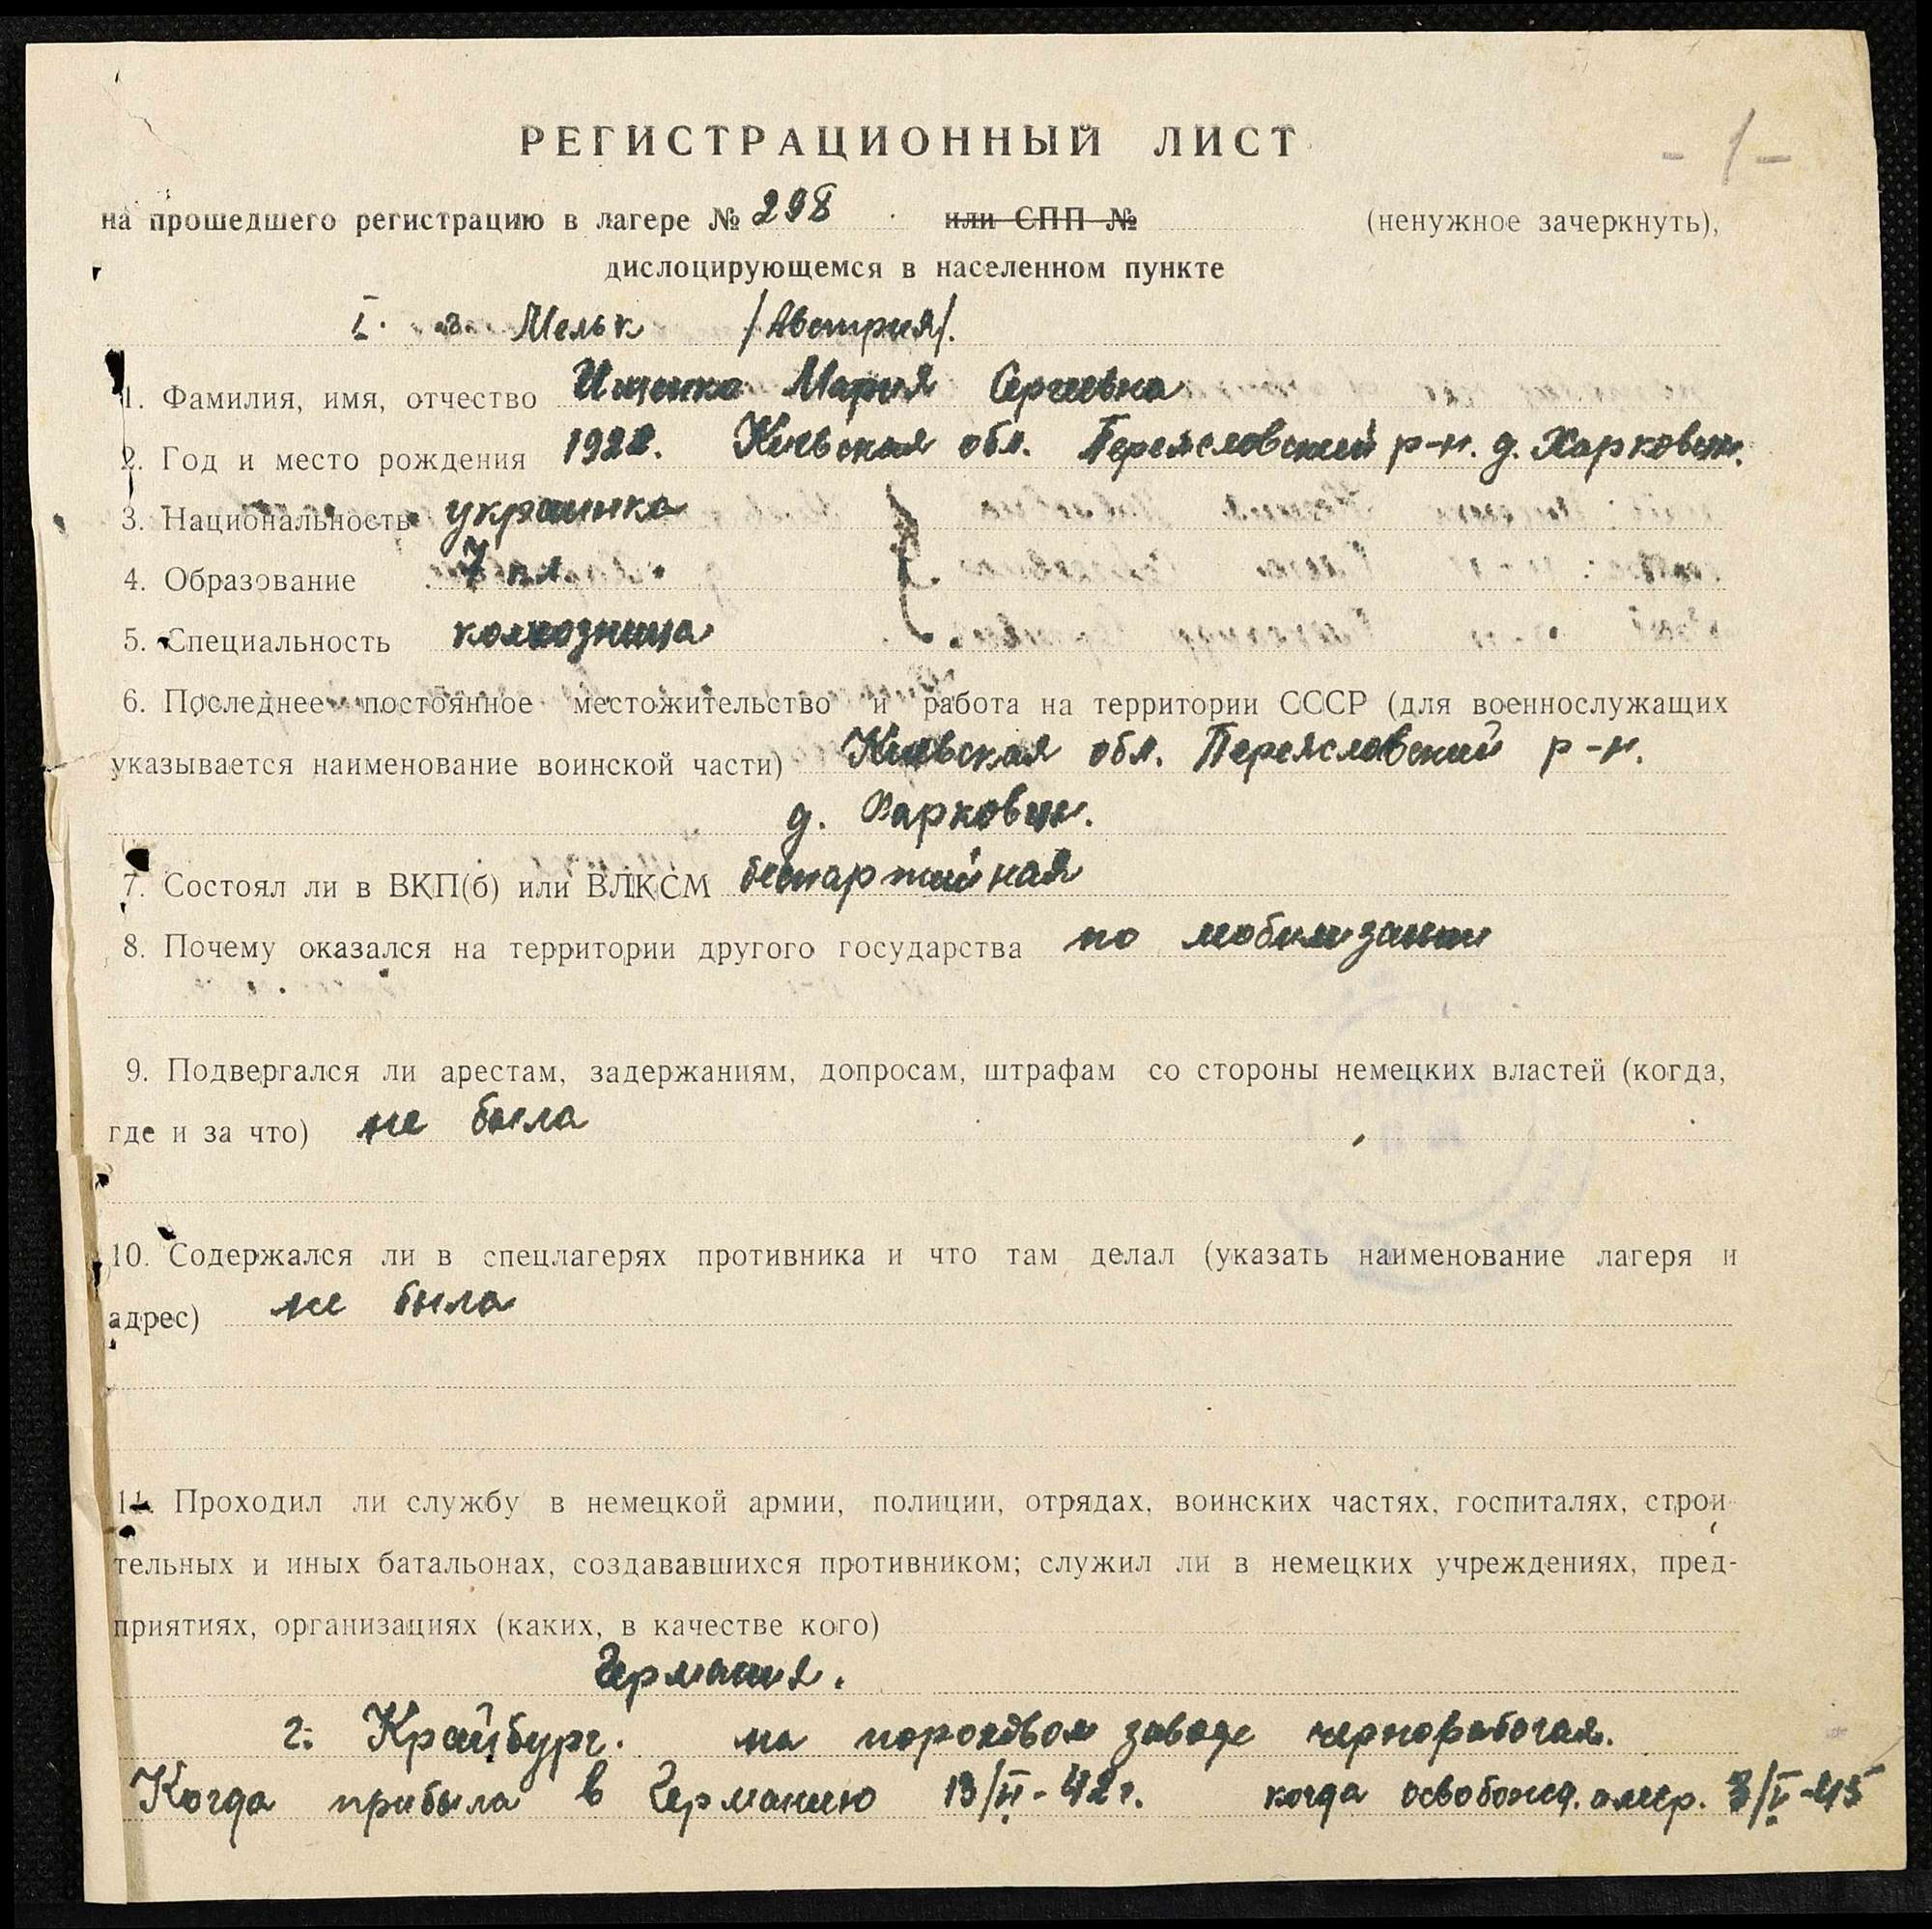 - 1 -
РЕГИСТРАЦИОННЫЙ ЛИСТ
на прошедшего регистрацию в лагере № 298 или СПП № (ненужное зачеркнуть),
дислоцирующемся в населенном пункте
г. Мельк /Австрия/.
1. Фамилия, имя, отчество Ищенко Мария Сергеевна
2. Год и место рождения 1922. Киевская обл. Переясловский р-н. д. Харковцы.
3. Национальность украинка
4. Образование 7 кл.
5. Специальность колхозница
6. Последнее постоянное местожительство и работа на территории СССР (для военнослужащих
указывается наименование воинской части) Киевская обл. Переясловский р-н.
д. Харковцы.
7. Состоял ли в ВКП(б) или ВЛКСМ беспартийная
8. Почему оказался на территории другого государства по мобилизации
9. Подвергался ли арестам, задержаниям, допросам, штрафам со стороны немецких властей (когда,
где и за что) не была
10. Содержался ли в спецлагерях противника и что там делал (указать наименование лагеря и
адрес) не была
11. Проходил ли службу в немецкой армии, полиции, отрядах, воинских частях, госпиталях, строи-
тельных и иных батальонах, создававшихся противником; служил ли в немецких учреждениях, пред-
приятиях, организациях (каких, в качестве кого)
Германия.
г. Крайбург. на пороховом заводе чернорабочая.
Когда прибыла в Германию 13/II-42г. когда освобожд. амер. 3/V-45